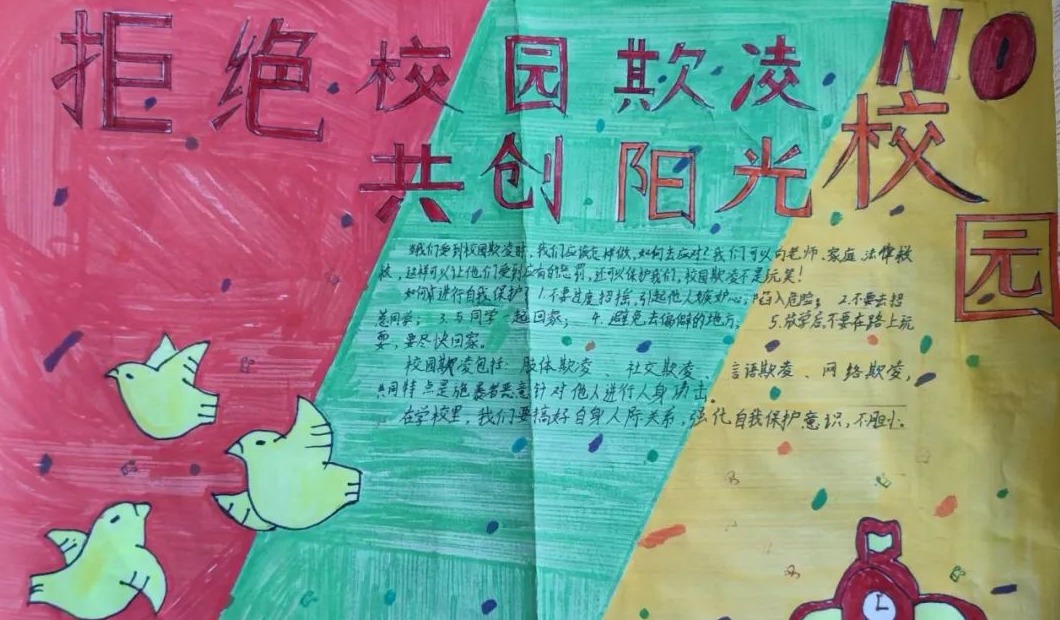 拒绝校园欺凌
共创阳光校园
NO
当我们受到校园欺凌时,我们应该怎样做,如何去应对?我们可以向老师、家庭、法律救
救,这样可以让他们受到应有的惩罚,还可以保护我们,校园欺凌不是玩笑!
如何进行自我保护? 1.不要过度招摇,引起他人嫉妒心,陷入危险; 2.不要去招
惹同学; 3.与同学一起回家; 4.避免去偏僻的地方; 5.放学后不要在路上玩
耍,要尽快回家。
校园欺凌包括:肢体欺凌、社交欺凌、言語欺凌、网络欺凌,
共同特点是施暴者恶意针对他人进行人身攻击。
在学校里,我们要搞好自身人际关系,强化自我保护意识,不胆小。